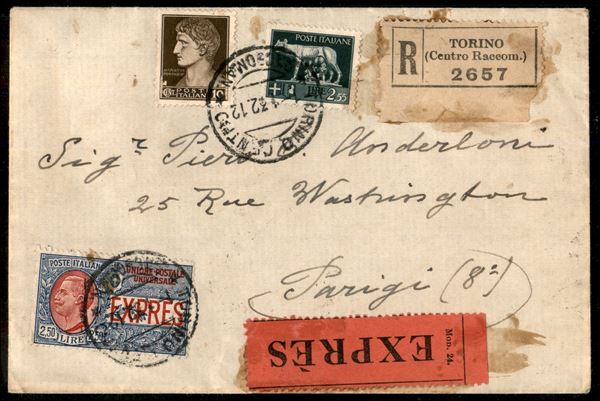 POSTE ITALIANE
LIRE 2,55
POSTE
ITALIANE
R
TORINO
(Centro Raccom.)
2657
TORINO CENTRO
Sigr Piero Anderloni
25 Rue Washington
Parigi (8e)
POSTE ITALIANE
UNIONE POSTALE
UNIVERSALE
EXPRÈS
2,50
LIRE
Mod. 24.
EXPRÈS